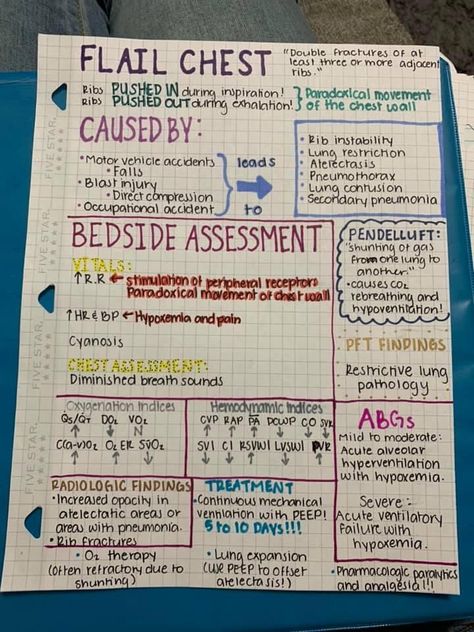 FLAIL CHEST
"Double fractures of at
least three or more adjacent
ribs."
Ribs PUSHED IN during inspiration!
Ribs PUSHED OUT during exhalation!
Paradoxical movement
of the chest wall
CAUSED BY:
• Motor vehicle accidents
• Falls
• Blast injury
• Direct compression
• Occupational accident
leads
to
• Rib instability
• Lung restriction
• Atelectasis
• Pneumothorax
• Lung contusion
• Secondary pneumonia
BEDSIDE ASSESSMENT
VITALS:
↑R.R ← stimulation of peripheral receptors
Paradoxical movement of chest wall
↑HR & BP ← Hypoxemia and pain
Cyanosis
CHEST ASSESSMENT:
Diminished breath sounds
PENDELLUFT:
"shunting of gas
from one lung to
another."
• causes CO2
rebreathing and
hypoventilation!
PFT FINDINGS
Restrictive lung
pathology
Oxygenation Indices
Qs/QT DO2 VO2
↑ ↓ N
C(a-v)O2 O2ER SVO2
Hemodynamic Indices
CVP RAP PA PCWP CO SV
SVI CI RSVWI LVSWI PVR
ABGs
Mild to moderate:
Acute alveolar
hyperventilation
with hypoxemia.
Severe:
Acute ventilatory
failure with
hypoxemia.
RADIOLOGIC FINDINGS
• Increased opacity in
atelectatic areas or
areas with pneumonia.
• Rib fractures
TREATMENT
• Continuous mechanical
ventilation with PEEP!
5 to 10 DAYS!!!
• O2 therapy
(often refractory due to
shunting)
• Lung expansion
(use PEEP to offset
atelectasis!)
• Pharmacologic paralytics
and analgesia!!!
FIVE STAR.
FIVE STAR.
FIVE STAR.